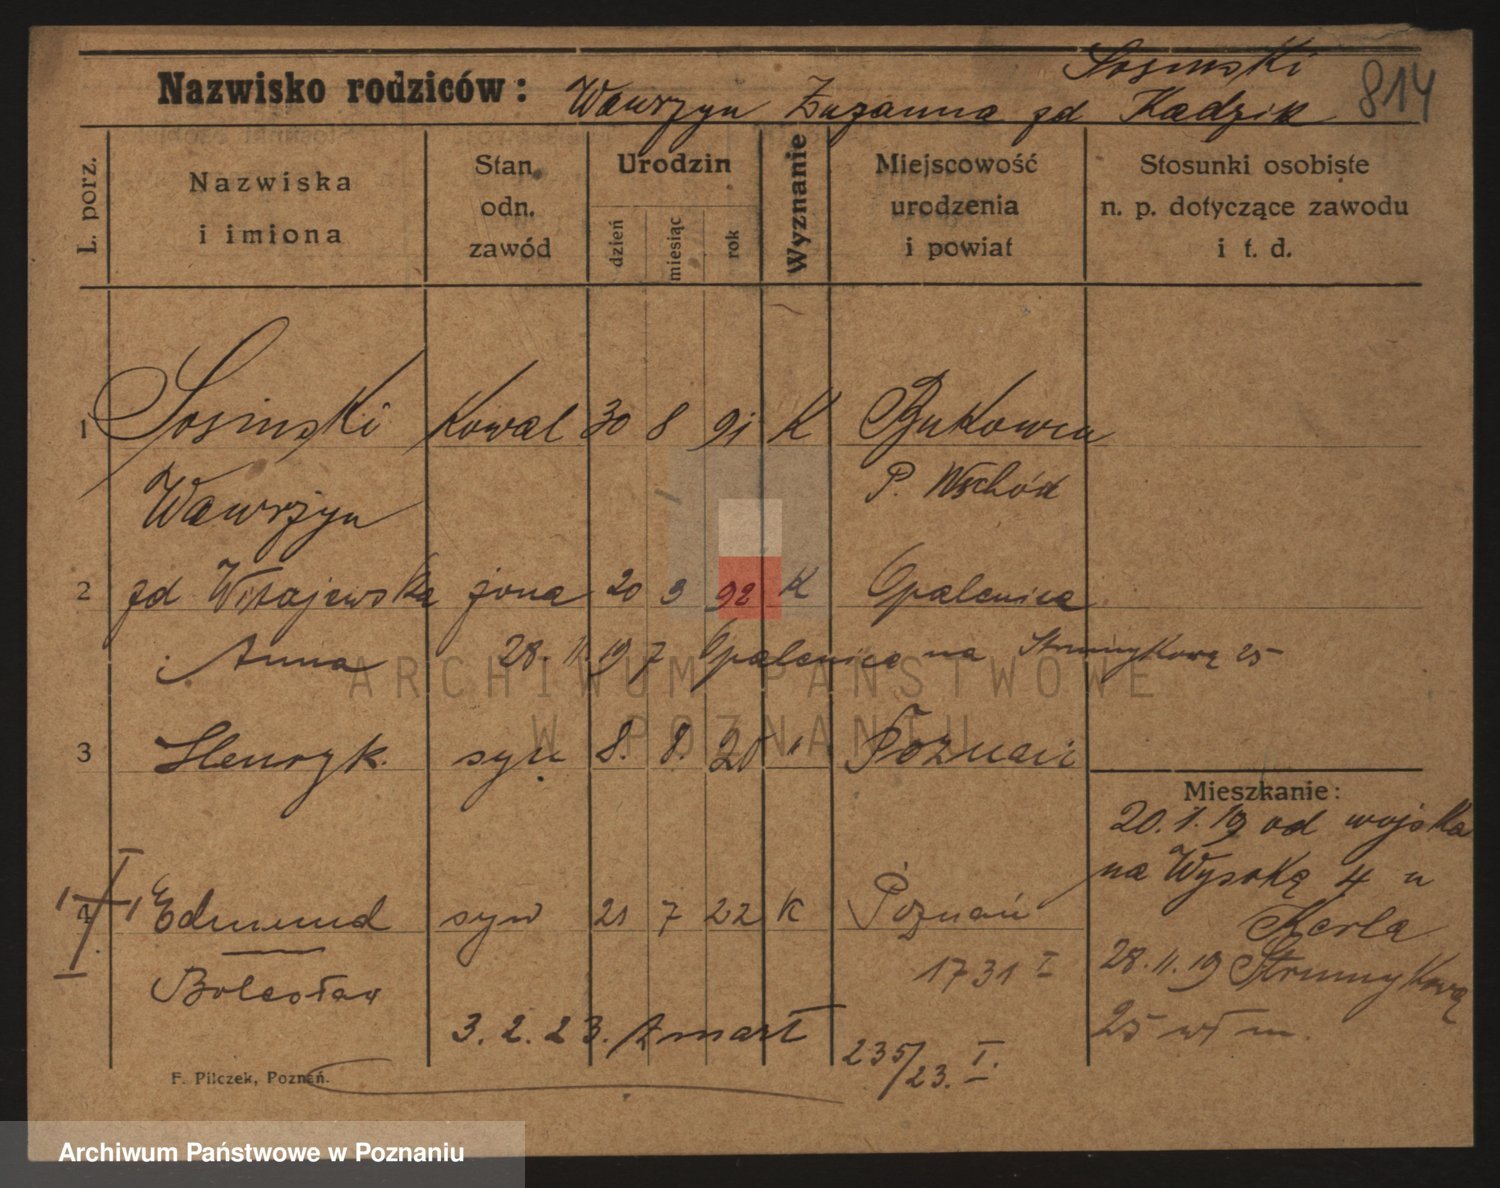 Sosinski
814
Nazwisko rodziców: Wawrzyn Zuzanna zd Kadzik
L. porz.
Nazwiska
i imiona
Stan
odn.
zawód
Urodzin
dzień
miesiąc
rok
Wyznanie
Miejscowość
urodzenia
i powiat
Stosunki osobiste
n. p. dotyczące zawodu
i t. d.
1 Sosinski Kowal 30 8 91 K Bukowca
Wawrzyn P. Wschód
2 zd żona 20 9 92 K Opalenica
Anna 28. 11 19 z Opalenica na Strumykową 25
3 Henryk. syn 8. 8. 20 " Poznań
Mieszkanie:
20. 1. 19 od wojska
na Wysoką 4 u
Kerla
28. 11. 19 Strumykową
25 wł m.
4 Edmund syn 21 7 22 K Poznań
Bolesław 1731 I
3. 2. 23. zmarł
235/23. I.
F. Pilczek, Poznań.
ARCHIWUM PAŃSTWOWE
W POZNANIU
Archiwum Państwowe w Poznaniu